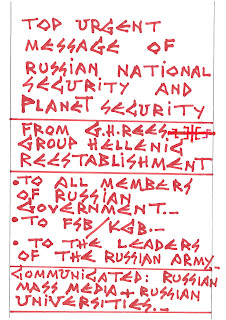 TOP URGENT
MESSAGE OF
RUSSIAN NATIONAL
SECURITY AND
PLANET SECURITY
FROM G.H.REES
GROUP HELLENIC
REESTABLISHMENT
• TO ALL MEMBERS
OF RUSSIAN
GOVERNMENT._
• TO FSB/KGB._
• TO THE LEADERS
OF THE RUSSIAN ARMY_
COMMUNICATED: RUSSIAN
MASS MEDIA + RUSSIAN
UNIVERSITIES._